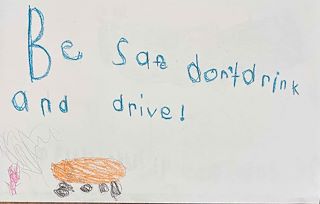 Be safe don't drink
and drive!